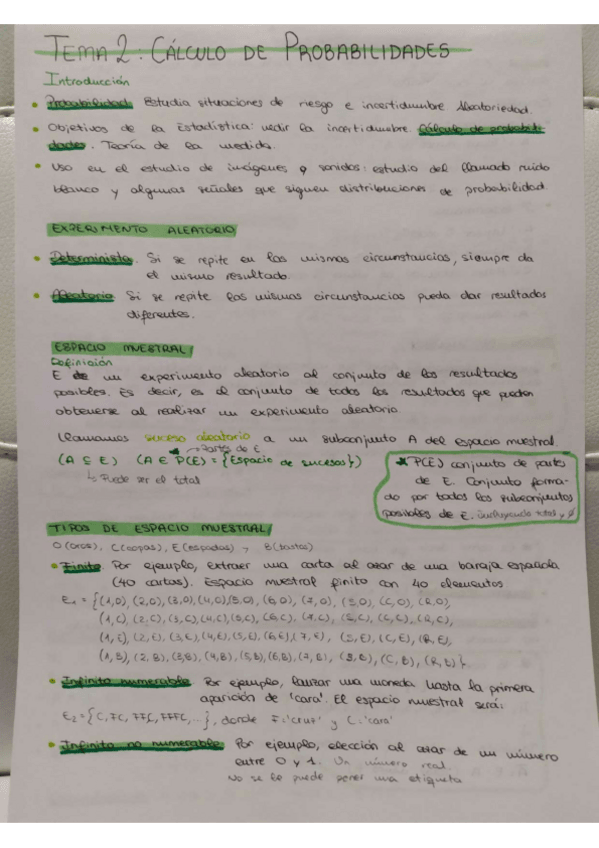 TEMA 2: CÁLCULO DE PROBABILIDADES
Introducción
• Probabilidad. Estudia situaciones de riesgo e incertidumbre. Aleatoriedad.
• Objetivos de la Estadística: medir la incertidumbre. Cálculo de probabili-
dades. Teoría de la medida.
• Uso en el estudio de imágenes y sonidos: estudio del llamado ruido
blanco y algunas señales que siguen distribuciones de probabilidad.
EXPERIMENTO ALEATORIO
• Determinista. Si se repite en las mismas circunstancias, siempre da
el mismo resultado.
• Aleatorio Si se repite las mismas circunstancias pueda dar resultados
diferentes.
ESPACIO MUESTRAL
Definición
E de un experimento aleatorio al conjunto de los resultados
posibles. Es decir, es el conjunto de todos los resultados que pueden
obtenerse al realizar un experimento aleatorio.
Llamamos suceso aleatorio a un subconjunto A del espacio muestral.
* → Partes de E
(A ⊆ E) (A ∈ P(E) = {Espacio de sucesos})
↳ Puede ser el total
* P(E) conjunto de partes
de E. Conjunto forma-
do por todos los subconjuntos
posibles de E. incluyendo total y ∅
TIPOS DE ESPACIO MUESTRAL
O (oros), C (copas), E (espadas) y B (bastos)
• Finito. Por ejemplo, extraer una carta al azar de una baraja española
(40 cartas). Espacio muestral finito con 40 elementos
E₁ = {(1,O), (2,O), (3,O), (4,O), (5,O), (6,O), (7,O), (S,O), (C,O), (R,O),
(1,C), (2,C), (3,C), (4,C), (5,C), (6,C), (7,C), (S,C), (C,C), (R,C),
(1,E), (2,E), (3,E), (4,E), (5,E), (6,E), (7,E), (S,E), (C,E), (R,E),
(1,B), (2,B), (3,B), (4,B), (5,B), (6,B), (7,B), (S,B), (C,B), (R,B)}.
• Infinito numerable Por ejemplo, lanzar una moneda hasta la primera
aparición de 'cara'. El espacio muestral será:
E₂ = {C, FC, FFC, FFFC, ...}, donde F: 'cruz' y C: 'cara'
• Infinito no numerable Por ejemplo, elección al azar de un número
entre 0 y 1. Un número real.
No se le puede poner una etiqueta